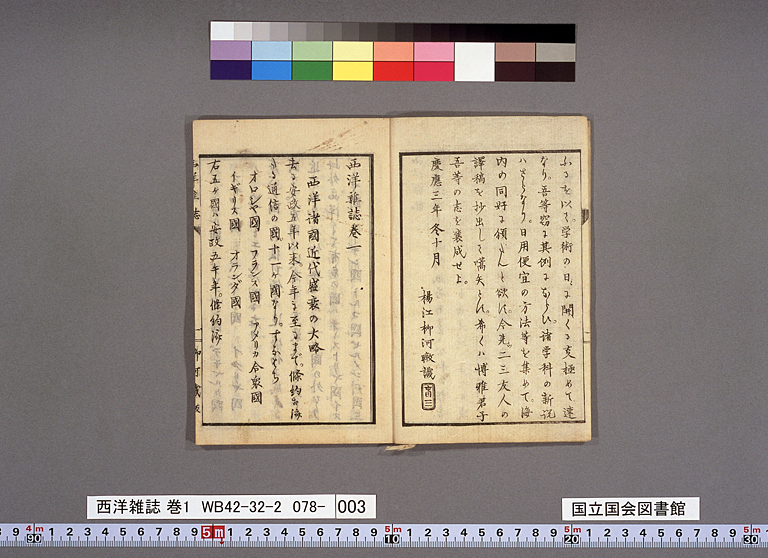 ふるを以て学術の日々に開くる事極めて速
なり。吾等窃に其例にならひ。諸学科の新説
日用便宜の方法等を集めて。海
内の同好に頒たんと欲す。今先二三友人の
譯稿を抄出して嚆矢とす。希くハ博雅君子
吾等の志を襄成せよ。
慶應三年冬十月
楊江柳河暾識
西洋雜誌巻一
西洋諸國近代盛衰の大略
去る安政五年以来今年に至るまで。條約為済
通信の國十一ヶ國なり。すなはち
オロシヤ國 フランス國 アメリカ合衆國
イギリス國 オランダ國
右五ヶ國ハ安政五午年。條約済
西洋雑誌 巻1 WB42-32-2 078-003
国立国会図書館